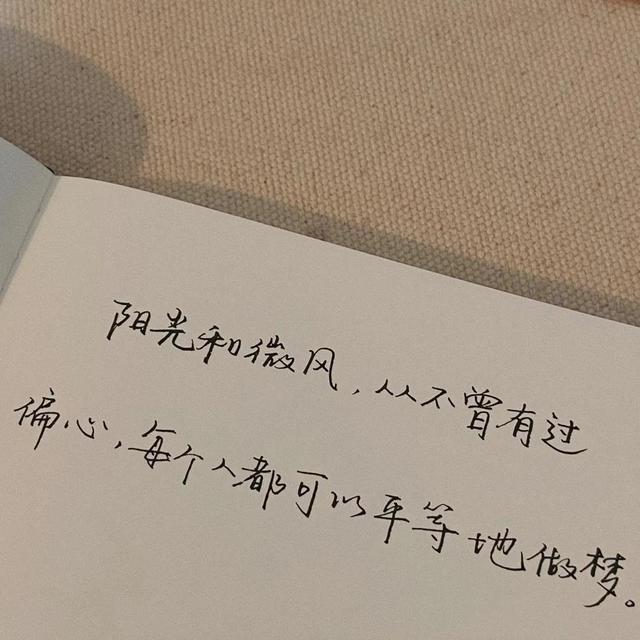 阳光和微风，从不曾有过
偏心，每个人都可以平等地做梦。